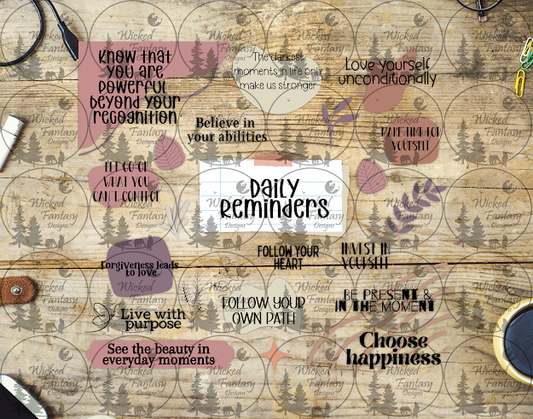 Know that
you are
powerful
beyond your
recognition
The darkest
moments in life only
make us stronger
Love yourself
unconditionally
Believe in
your abilities
MAKE TIME FOR
YOURSELF
LET GO OF
WHAT YOU
CAN'T CONTROL
Daily
Reminders
Forgiveness leads
to love
FOLLOW YOUR
HEART
INVEST IN
YOURSELF
Live with
purpose
FOLLOW YOUR
OWN PATH
BE PRESENT &
IN THE MOMENT
See the beauty in
everyday moments
Choose
happiness
Wicked
Fantasy
Designs